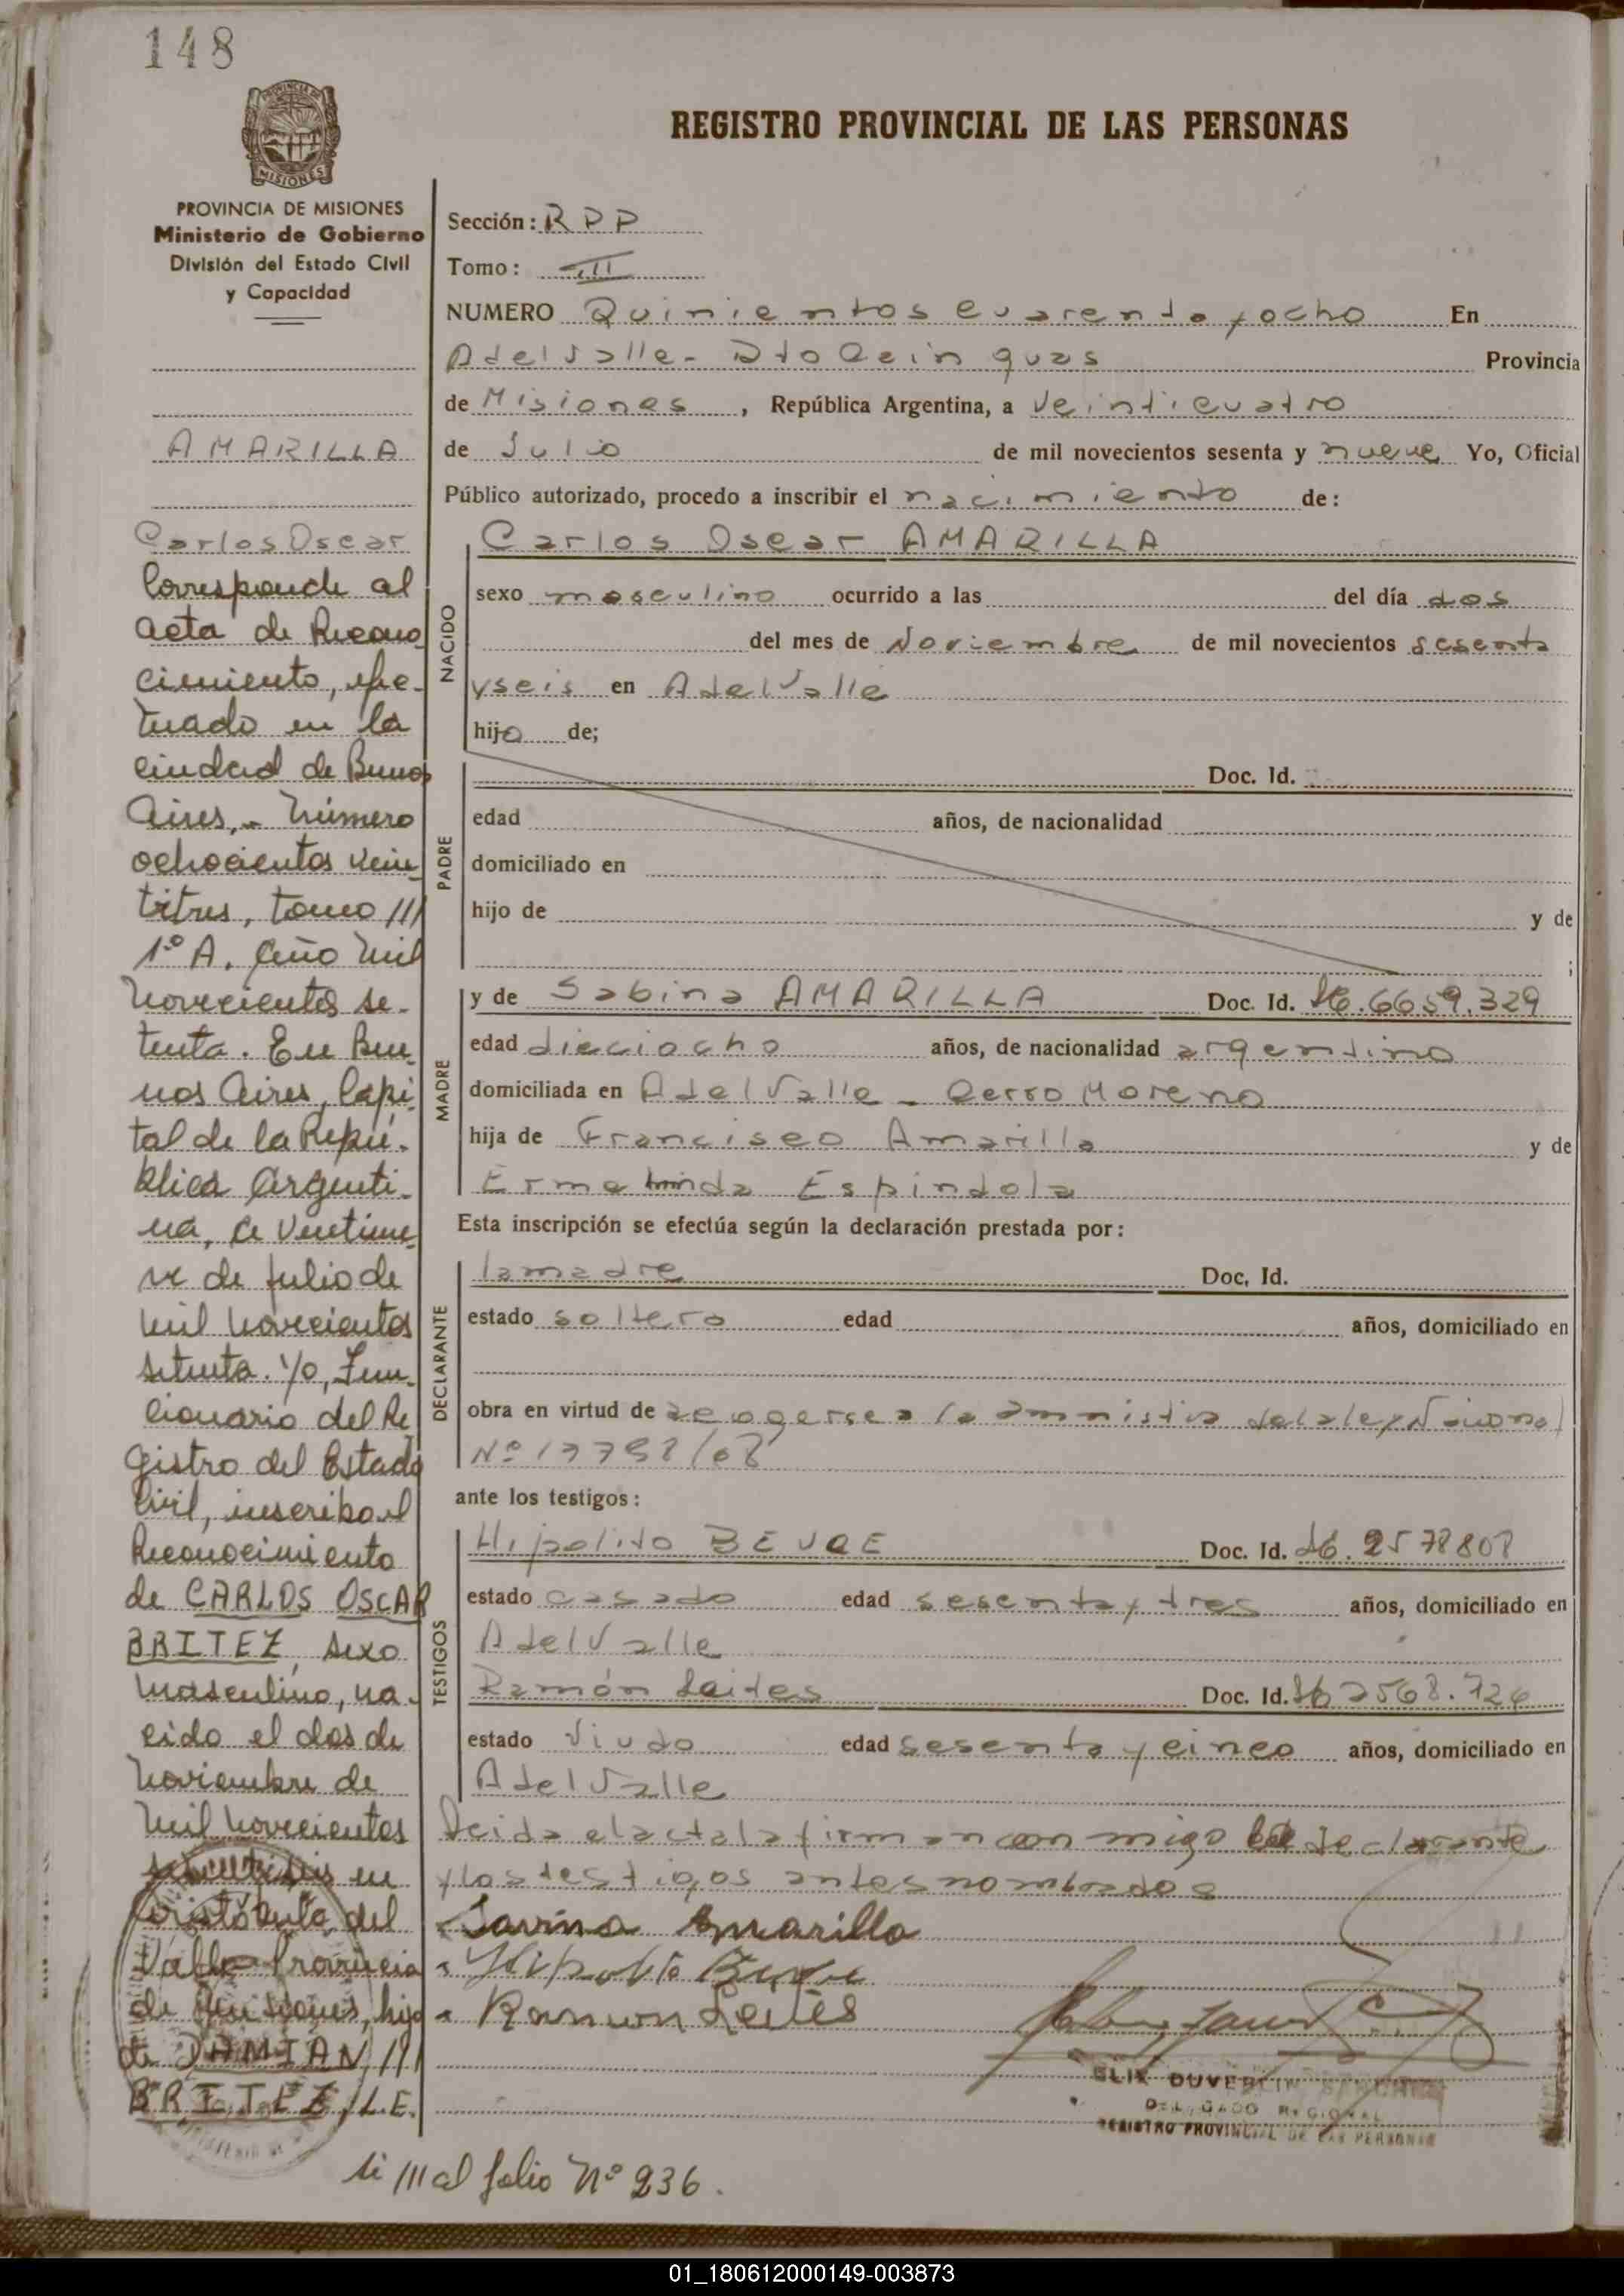 148
PROVINCIA DE MISIONES
MISIONES
PROVINCIA DE MISIONES
Ministerio de Gobierno
División del Estado Civil
y Capacidad
AMARILLA
Carlos Oscar
Corresponde al
acta de Recono
cimiento, efec-
tuado en la
ciudad de Buenos
Aires,- Número
ochocientos vein
titres, tomo III
1º A. Año mil
novecientos se-
tenta. En Bue-
nos Aires, Capi-
tal de la Repú-
blica Argenti-
na, a veintinue
ve de Julio de
mil novecientos
setenta. Yo, Fun-
cionario del Re
gistro del Estado
Civil, inscribo el
Reconocimiento
de CARLOS OSCAR
BRITEZ, sexo
masculino, na-
cido el dos de
noviembre de
mil novecientos
en
del
Valle Provincia
de Misiones, hijo
de DAMIAN,
BRITEZ, L.E.
REGISTRO PROVINCIAL DE LAS PERSONAS
Sección: RPP
Tomo: III
NUMERO Quinientos cuarenta y ocho En
A del Valle - Dto Cainguas Provincia
de Misiones, República Argentina, a Veinticuatro
de Julio de mil novecientos sesenta y nueve Yo, Oficial
Público autorizado, procedo a inscribir el nacimiento de:
NACIDO
Carlos Oscar AMARILLA
sexo masculino ocurrido a las del día dos
del mes de Noviembre de mil novecientos sesenta
y seis en A del Valle
hijo de;
PADRE
Doc. Id.
edad años, de nacionalidad
domiciliado en
hijo de y de
;
MADRE
y de Sabina AMARILLA Doc. Id. 6.659.329
edad dieciocho años, de nacionalidad argentina
domiciliada en A del Valle - Cerro Moreno
hija de Francisco Amarilla y de
Ermelinda Espindola
Esta inscripción se efectúa según la declaración prestada por:
DECLARANTE
la madre Doc. Id.
estado soltera edad años, domiciliado en
obra en virtud de acogerse a la amnistia de la ley Nacional
Nº
ante los testigos:
TESTIGOS
Hipolito BEUQE Doc. Id. 2578808
estado casado edad sesenta y tres años, domiciliado en
A del Valle
Ramón Leites Doc. Id. 2568.724
estado viudo edad sesenta y cinco años, domiciliado en
A del Valle
Leida el acta la firman con migo la declarante
y los testigos antes nombrados
Savina Amarilla
Hipolito
Ramon Leites
DUVERLIN
DELEGADO REGIONAL
REGISTRO PROVINCIAL DE LAS PERSONAS
al folio Nº 236.
01_180612000149-003873